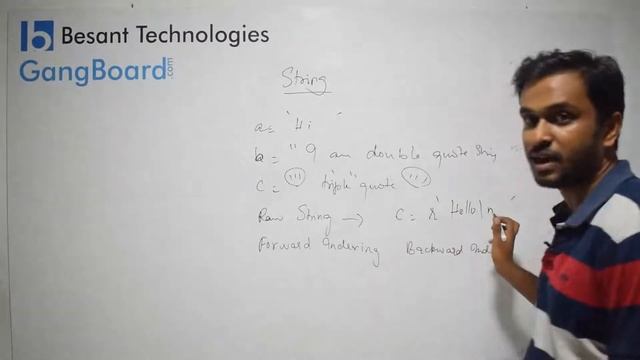 Besant Technologies
GangBoard.com
String
a = 'Hi'
b = " I am double quote String "
c = ''' triple quote '''
Raw String → c = r' Hello\n '
Forward Indexing Backward Ind